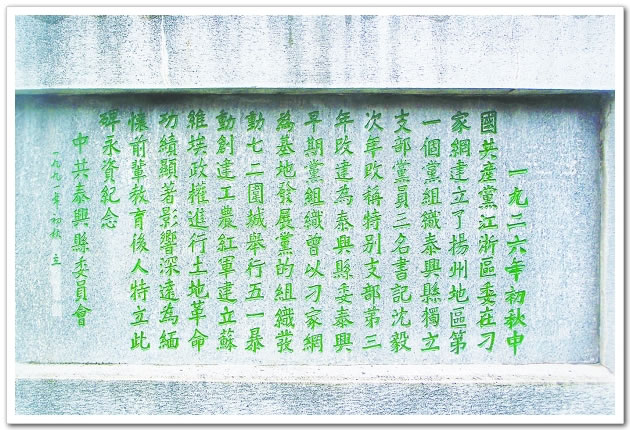 一九二六年初秋中
國共産黨江浙區委在刁
家網建立了揚州地區第
一個黨組織泰興縣獨立
支部黨員三名書記沈毅
次年改稱特别支部第三
年改建為泰興縣委泰興
早期黨組織曾以刁家網
為基地發展黨的組織發
動七二圍城舉行五一暴
動創建工農紅軍建立蘇
維埃政權進行土地革命
功績顯著影響深遠為緬
懷前輩教育後人特立此
碑永資紀念
中共泰興縣委員會
一九九一年初秋 立